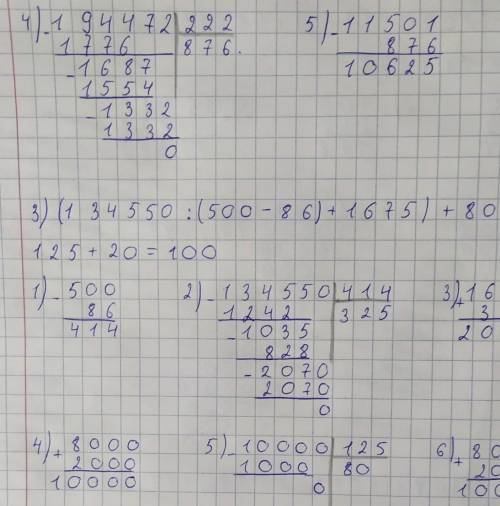 4) - 194472 | 222
1776 876.
- 1687
1554
- 1332
1332
0
5) - 11501
876
10625
3) (134550 : (500 - 86) + 1675) + 80
125 + 20 = 100
1) - 500
86
414
2) - 134550 | 414
1242 325
- 1035
828
- 2070
2070
0
3) + 16
3
20
4) + 8000
2000
10000
5) - 10000 | 125
1000 80
0
6) + 80
20
100